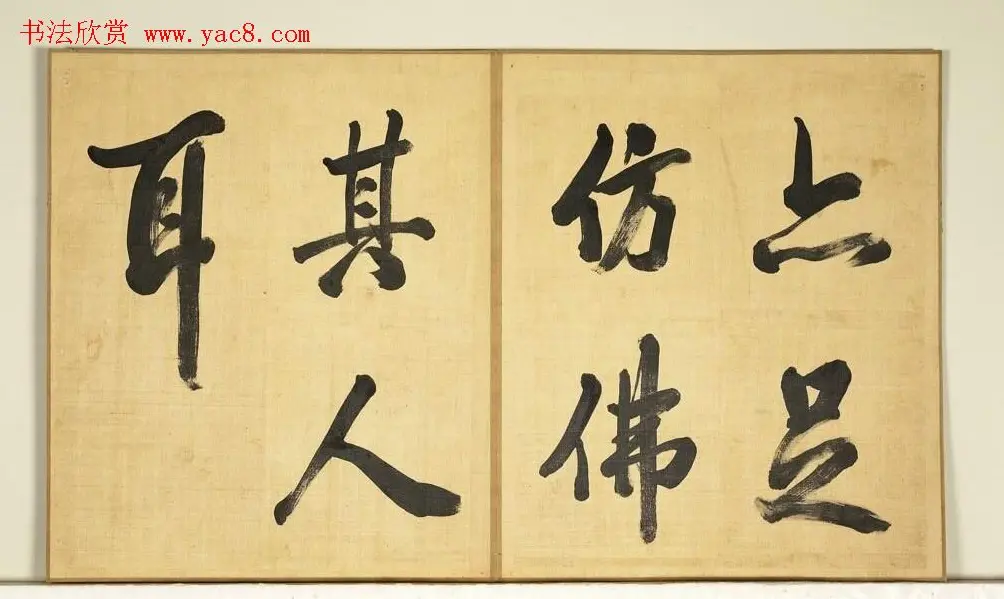 亦足
仿佛
其人
耳
书法欣赏 www.yac8.com